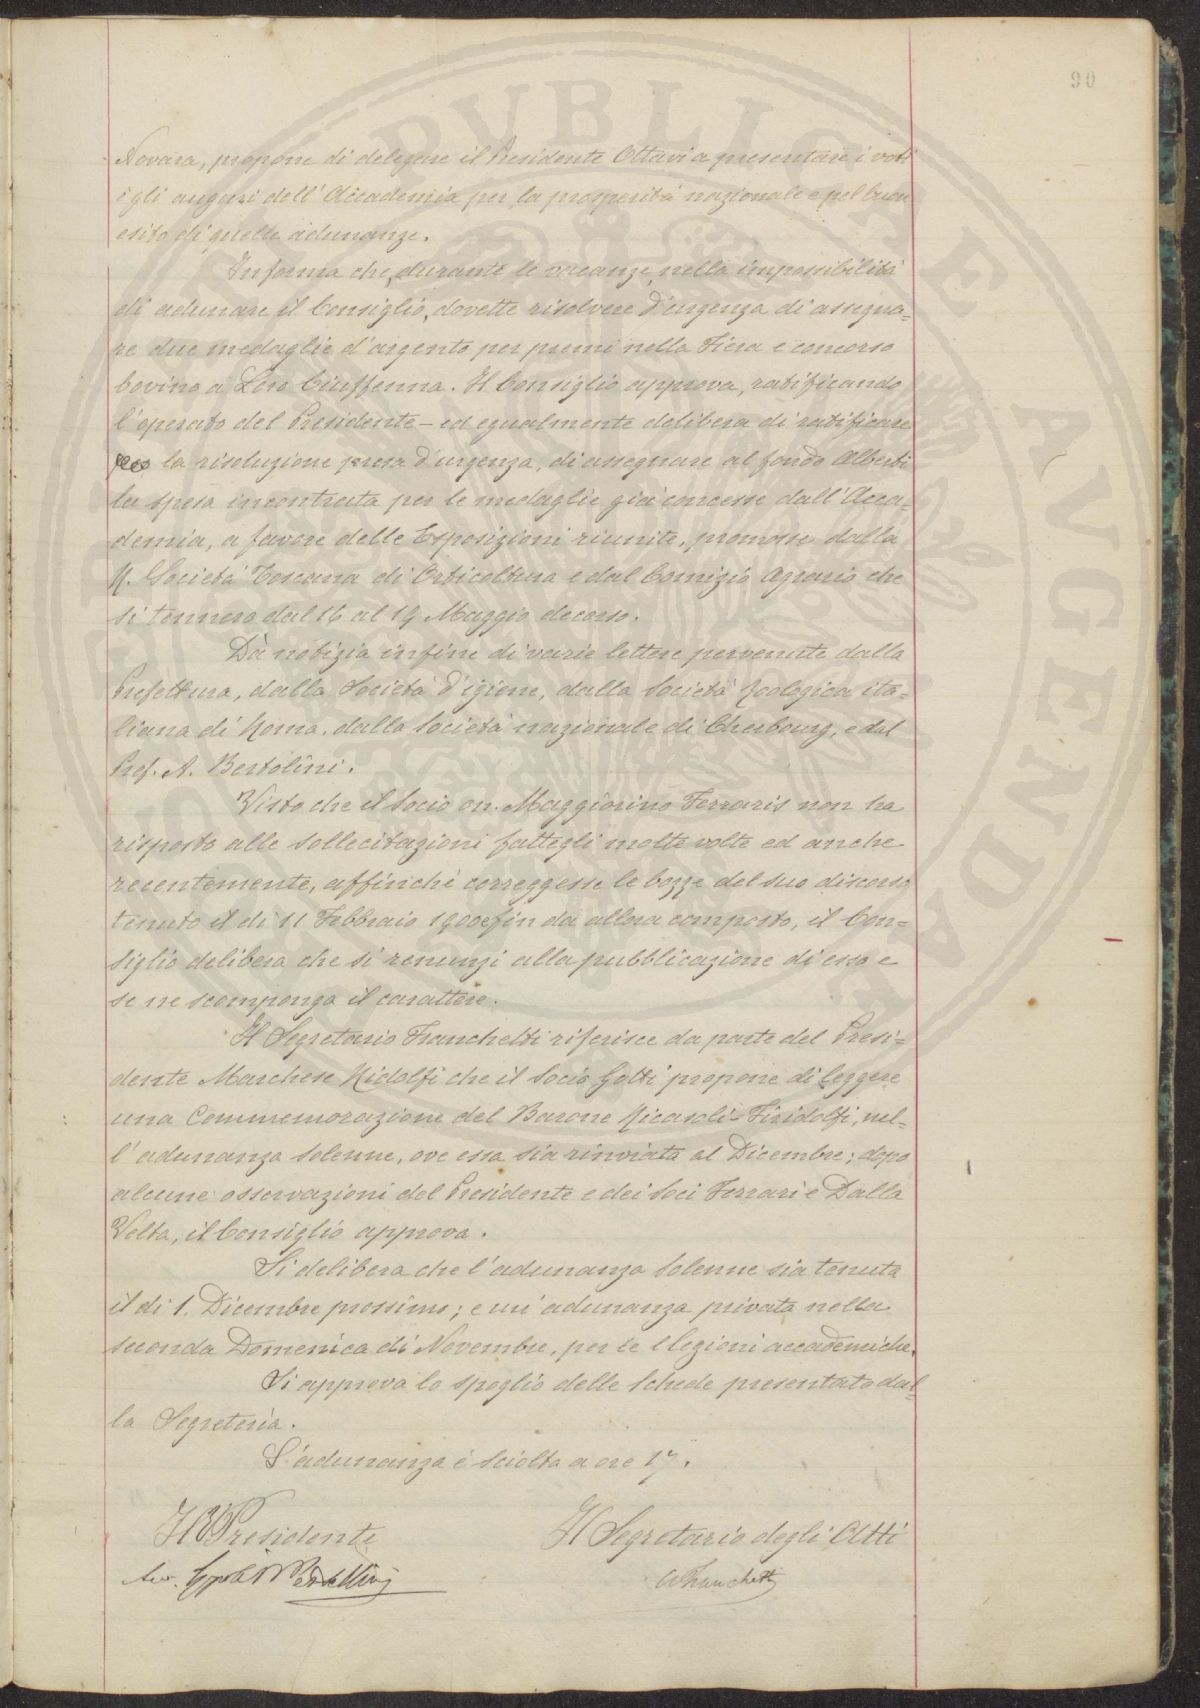 90
Novara, propone di delegare il Presidente Ottavi a presentare i voti
e gli auguri dell'Accademia per la prosperità nazionale e pel buon
esito di quelle adunanze.
Informa che, durante le vacanze, nella impossibilità
di adunare il Consiglio, dovette risolvere d'urgenza di assegna=
re due medaglie d'argento per premi nella Fiera e concorso
bovino a Loro Ciuffenna. Il Consiglio approva, ratificando
l'operato del Presidente - ed egualmente delibera di ratificare
la risoluzione presa d'urgenza, di assegnare al fondo Alberti
la spesa incontrata per le medaglie già concesse dall'Acca=
demia, a favore delle Esposizioni riunite, promosse dalla
R. Società Toscana di Orticoltura e dal Comizio Agrario che
si tennero dal 16 al 19 Maggio decorso.
Dà notizia infine di varie lettere pervenute dalla
Prefettura, dalla Società d'igiene, dalla Società Zoologica ita=
liana di Roma, dalla Società nazionale di Cherbourg, e dal
Prof. A. Bertolini.
Visto che il Socio on. Maggiorino Ferraris non ha
risposto alle sollecitazioni fattegli molte volte ed anche
recentemente, affinchè correggesse le bozze del suo discorso
tenuto il dì 11 Febbraio 1900 e fin da allora composto, il Con=
siglio delibera che si renunzi alla pubblicazione di esso e
se ne scomponga il carattere.
Il Segretario Franchetti riferisce da parte del Presi=
dente Marchese Ridolfi che il Socio Gotti propone di leggere
una Commemorazione del Barone Ricasoli-Firidolfi, nel=
l'adunanza solenne, ove essa sia rinviata al Dicembre; dopo
alcune osservazioni del Presidente e dei Soci Ferrari e Dalla
Volta, il Consiglio approva.
Si delibera che l'adunanza solenne sia tenuta
il dì 1. Dicembre prossimo; e un'adunanza privata nella
seconda Domenica di Novembre, per le Elezioni accademiche.
Si approva lo spoglio delle schede presentato dal=
la Segreteria.
L'adunanza è sciolta a ore 17.
Il V. Presidente
Il Segretario degli Atti
A Franchetti